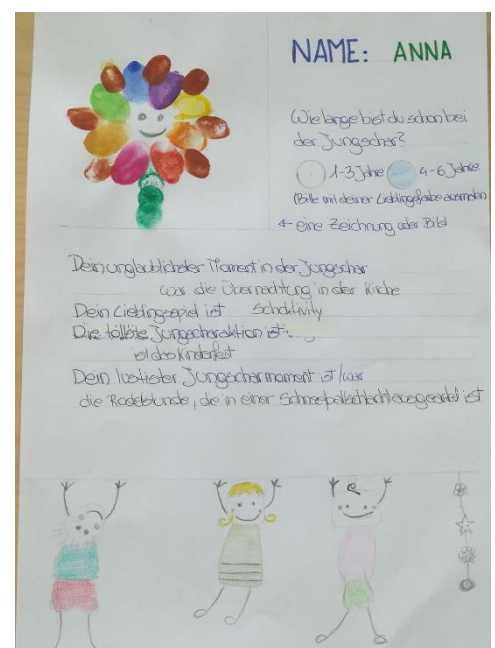 NAME: ANNA
Wie lange bist du schon bei
der Jungschar?
1-3 Jahre 4-6 Jahre
(Bitte mit deiner Lieblingsfarbe ausmalen
eine Zeichnung oder Bild
Dein unglaublichster Moment in der Jungschar
war die Übernachtung in der Kirche
Dein Lieblingsspiel ist Schoktivity
Die tollste Jungscharaktion ist
ist das Kinderfest
Dein lustigster Jungscharmoment ist/war
die Rodelstunde, die in einer Schneeballschlacht ausgeartet ist